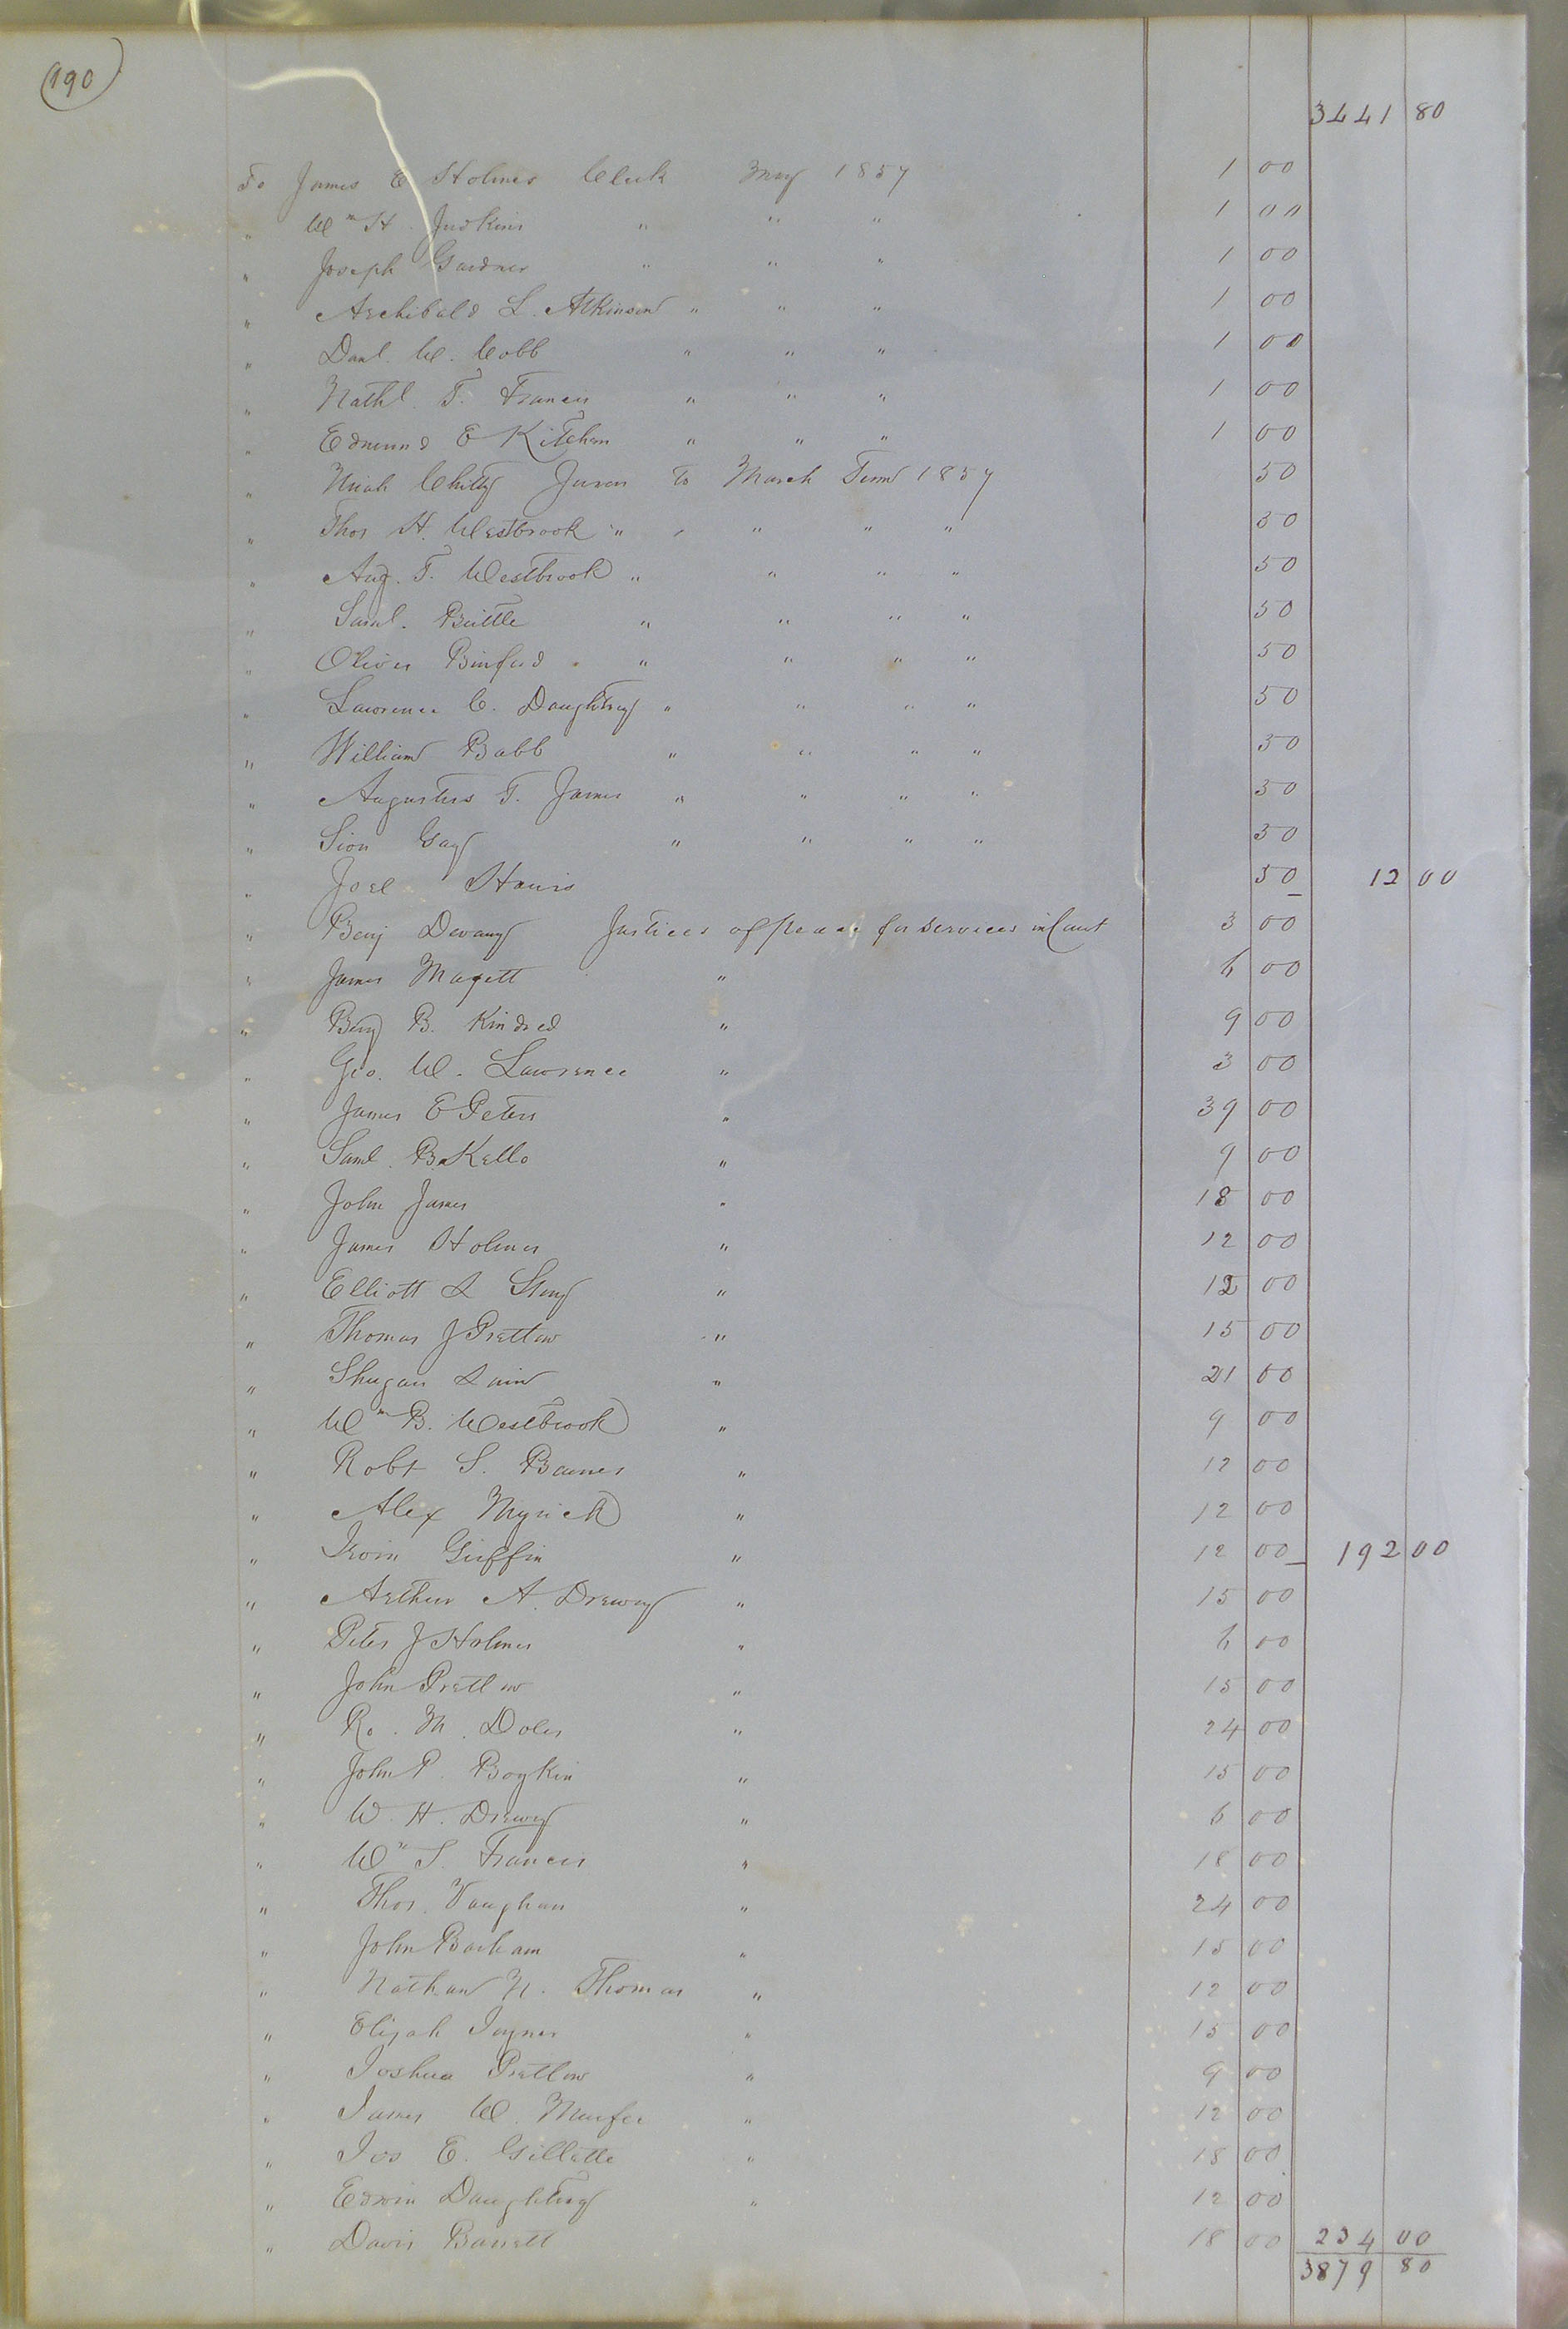 190
3441 80
To James E Holmes Clerk May 1857 1 00
" Wm H. Judkins " " " 1 00
" Joseph Gardner " " " 1 00
" Archibald L. Atkinson " " " 1 00
" Danl. W. Cobb " " " 1 00
" Nathl. T. Francis " " " 1 00
" Edmund E Kitchen " " " 1 00
" Chitty Juror to March Term 1857 50
" Thos H. Westbrook " " " " " 50
" Aug. T. Westbrook " " " " 50
" Saml. Brittle " " " " 50
" Oliver Binford " " " " 50
" Lawrence C. Daughtrey " " " " 50
" William Babb " " " " 50
" Augustus T. James " " " " 50
" Sion Gay " " " " 50
" Joel Harris 50 12 00
" Benj Devany Justices of peace for services in Court 3 00
" James Magett " 6 00
" Benj B. Kindred " 9 00
" Geo. W. Lawrence " 3 00
" James E Peters " 39 00
" Saml. B. Kello " 9 00
" John James " 18 00
" James Holmes " 12 00
" Elliott L Story " 12 00
" Thomas J Pretlow " 15 00
" Shugars Lain " 21 00
" Wm B. Westbrook " 9 00
" Robt S. Barnes " 12 00
" Alex Myrick " 12 00
" Irvin Griffin " 12 00 192 00
" Arthur A. Drewry " 15 00
" Peter J Holmes " 6 00
" John Pretlow " 15 00
" Ro. M. Doles " 24 00
" John P. Boykin " 15 00
" W. H. Drewry " 6 00
" Wm S. Francis " 18 00
" Thos. Vaughan " 24 00
" John Barham " 15 00
" Nathan N. Thomas " 12 00
" Elijah Joyner " 15 00
" Joshua Pretlow " 9 00
" James W. Murfee " 12 00
" Jos E. Gillette " 18 00
" Edwin Daughtrey " 12 00
" Davis Barrett 18 00 234 00
3879 80